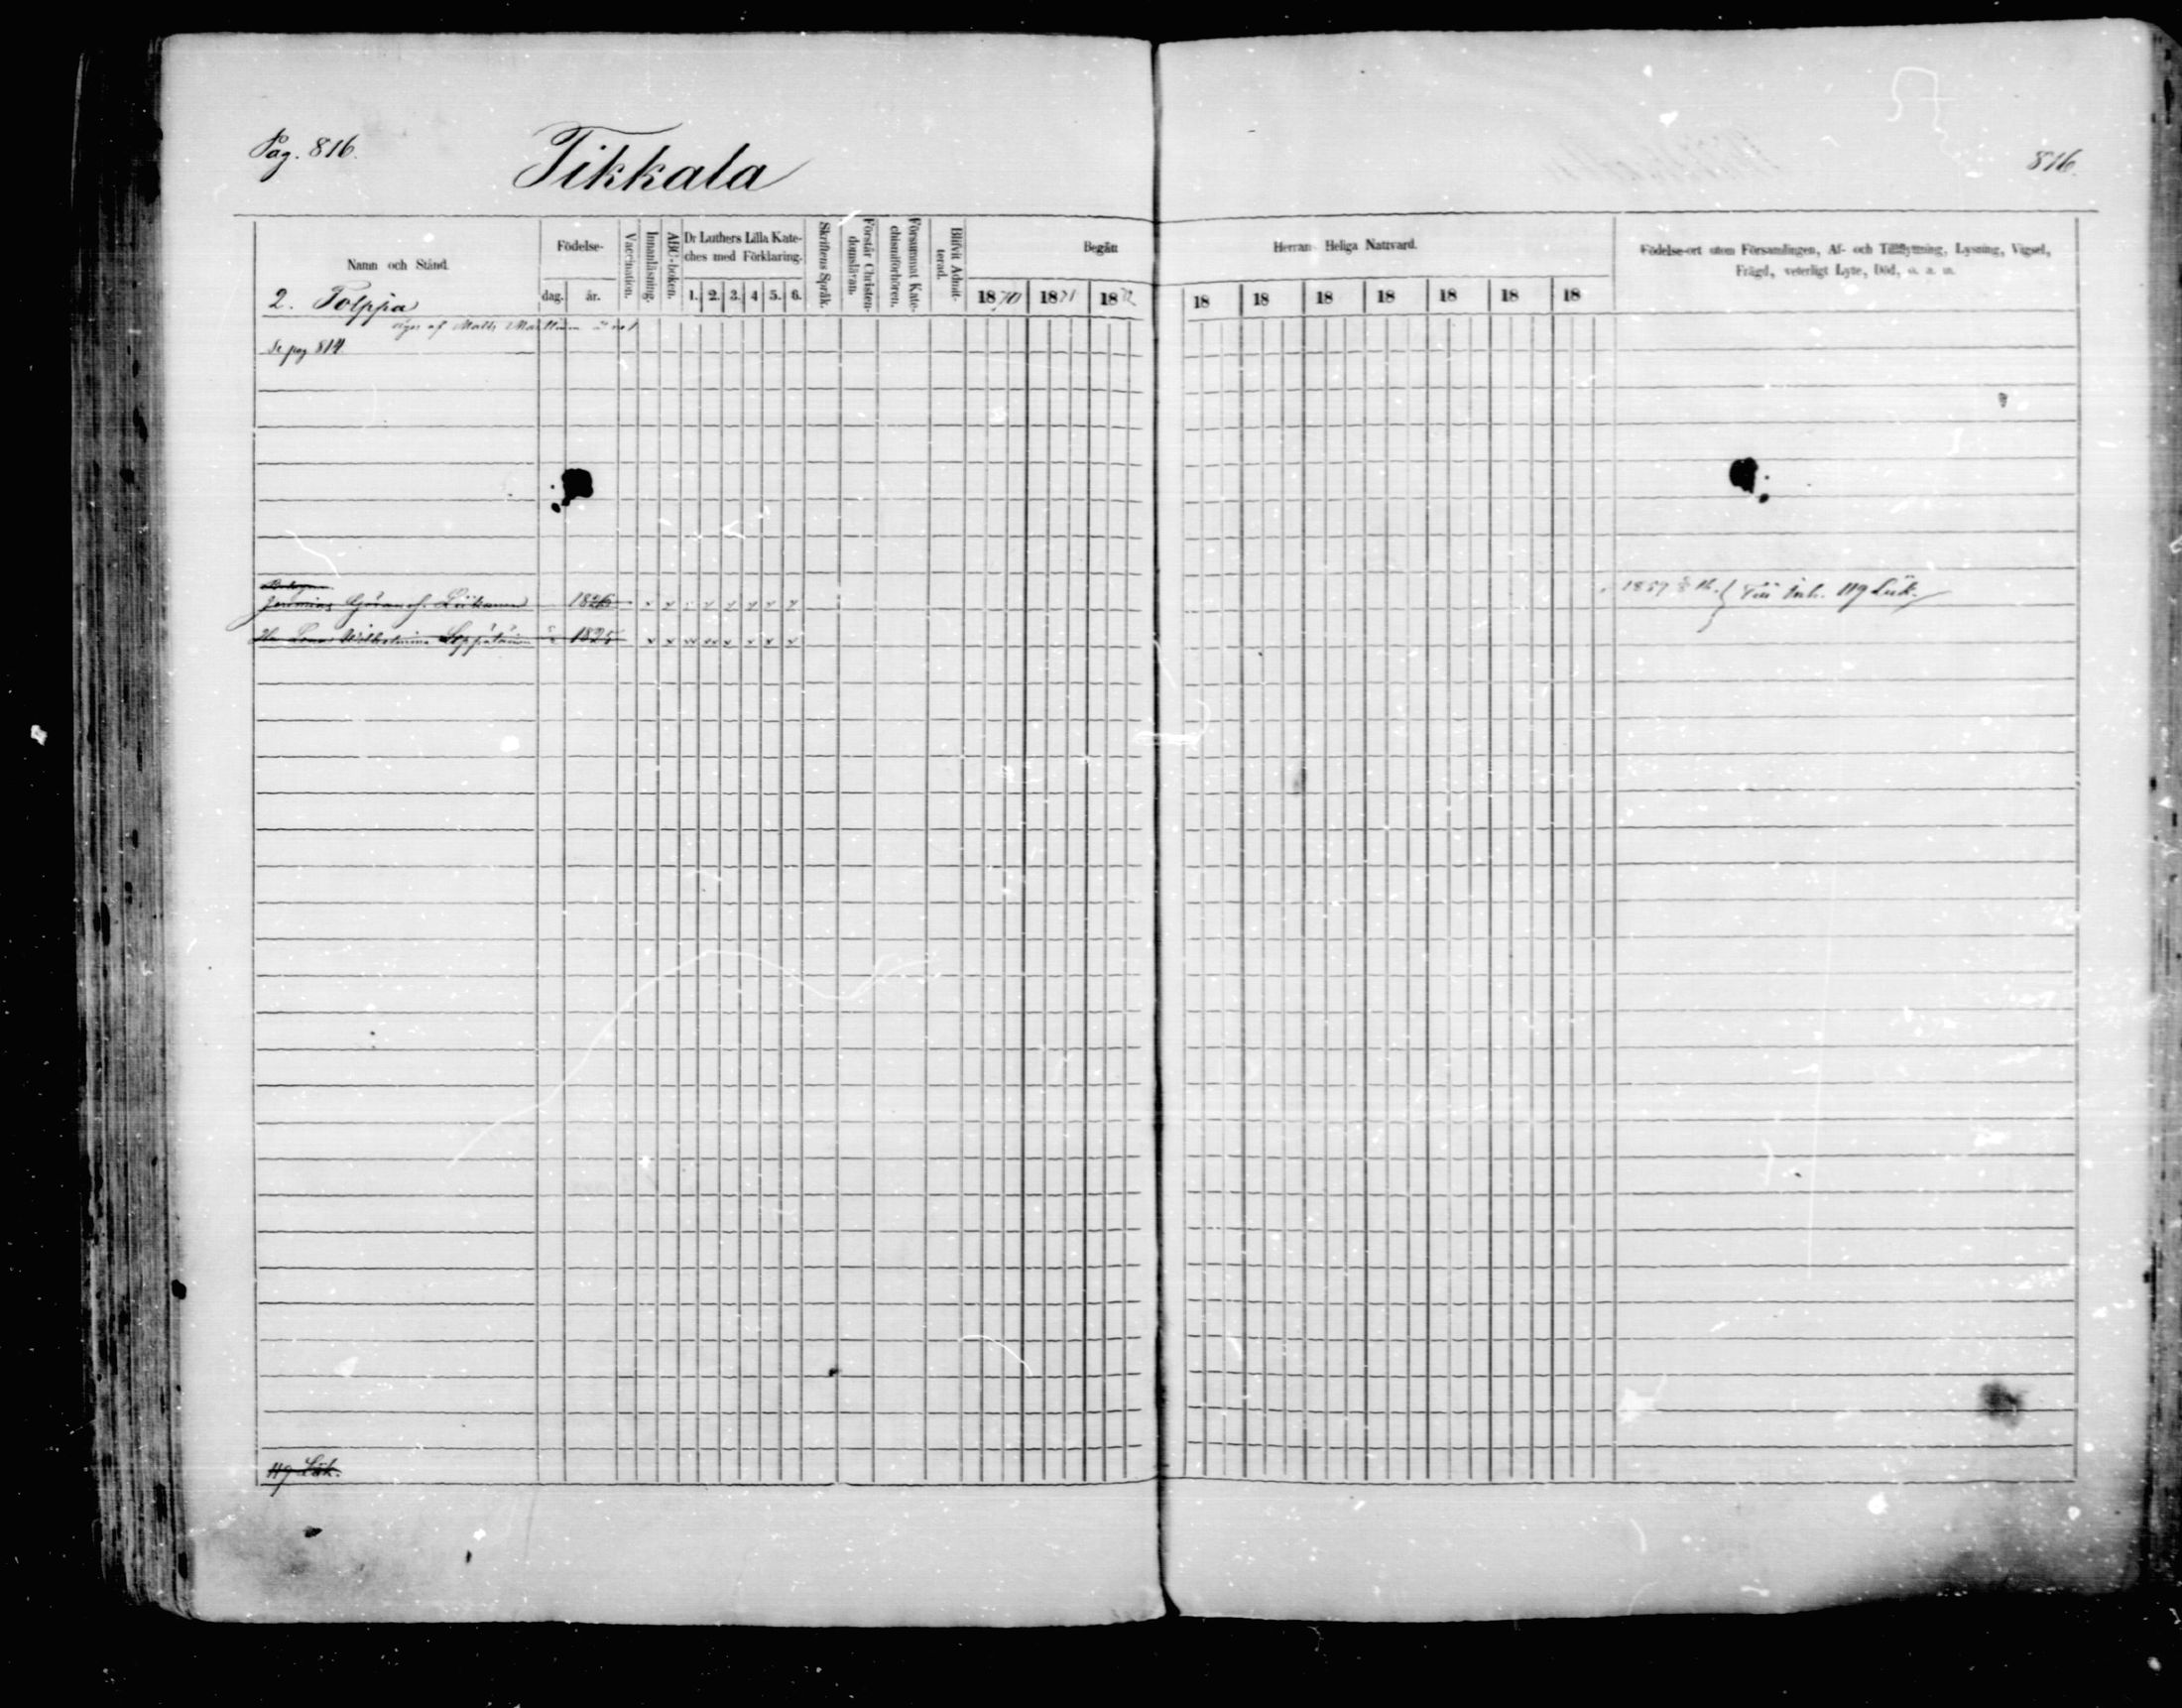 Pag. 816.
Tikkala
816.
Namn och Stånd.
Födelse-
dag.
år.
Vaccination.
Innanläsning.
ABC-boken.
Dr Luthers Lilla Kate-
ches med Förklaring.
1. 2. 3. 4 5. 6.
Skriftens Språk.
Förstår Christen-
domsläran.
Försummat Kate-
chismiförhören.
Blifvit Admit-
terad.
Begått
Herrans Heliga Nattvard.
1870 1871 1872
18 18 18 18 18 18 18
Födelse-ort utom Församlingen, Af- och Tillflyttning, Lysning, Vigsel,
Frägd, veterligt Lyte, Död, o. a. m.
2. Tolppa
äges af Matts
Se pag 814
Göransf. 1826
Wilhelmina 1825
1857
119 Luk.
119 Luk.